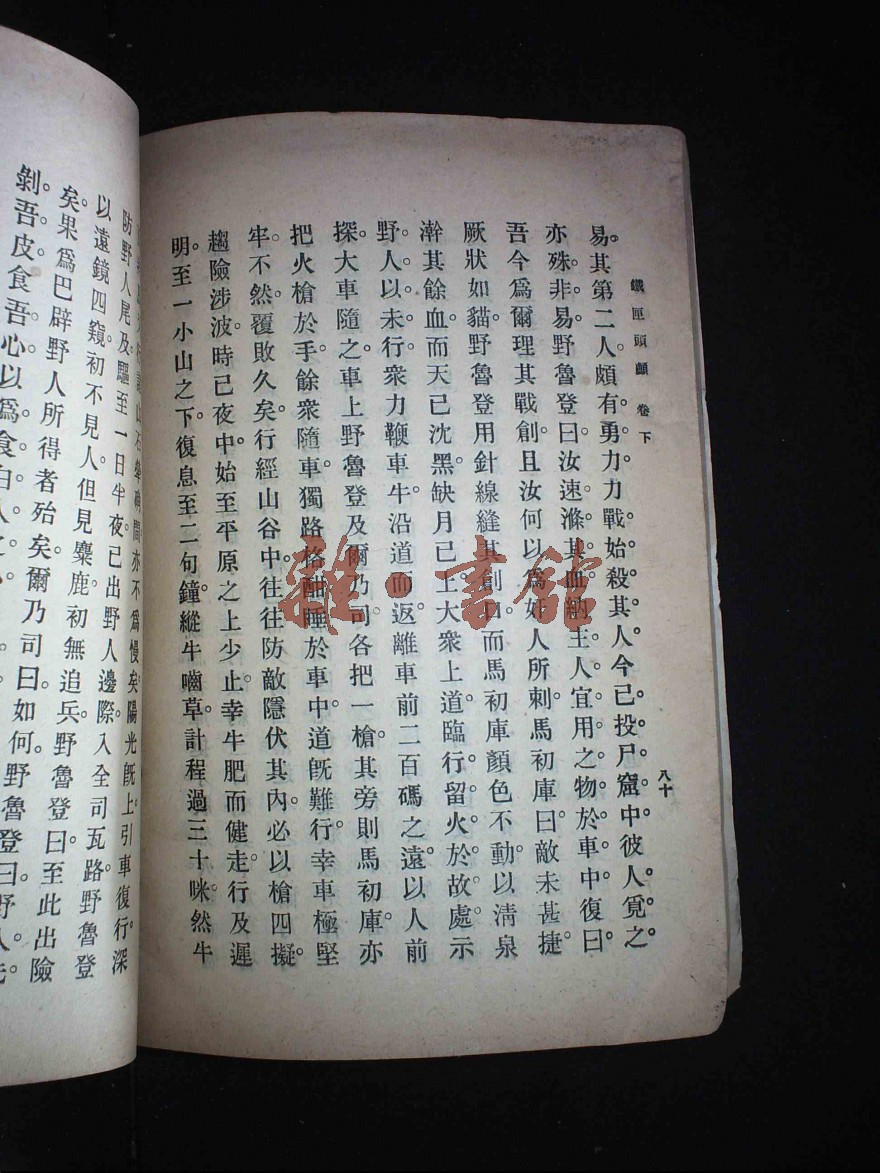 鐵匣頭顱 卷下
八十
易。其第二人頗有勇力。力戰始殺其人。今已投尸窟中。彼人覓之。
亦殊非易。野魯登曰。汝速滌其血。納主人宜用之物於車中。復曰。
吾今爲爾理其戰創。且汝何以爲奸人所刺。馬初庫曰。敵未甚捷。
厥狀如貓。野魯登用針線縫其創口。而馬初庫顏色不動。以清泉
澣其餘血。而天已沈黑。缺月已上。大衆上道。臨行。留火於故處。示
野人以未行。衆力鞭車牛。沿道而返。離車前二百碼之遠。以人前
探。大車隨之。車上野魯登及爾乃司各把一槍。其旁則馬初庫。亦
把火槍於手。餘衆隨車。獨路格酣睡於車中。道既難行。幸車極堅
牢。不然。覆敗久矣。行經山谷中。往往防敵隱伏其內。必以槍四擬。
趨險涉波。時已夜中。始至平原之上少止。幸牛肥而健走。行及遲
明。至一小山之下。復息至二句鐘。縱牛嚙草。計程過三十咪。然牛
亦不爲慢矣。陽光既上。引車復行。深
防野人尾及。驅至一日半夜。已出野人邊際。入全司瓦路。野魯登
以遠鏡四窺。初不見人。但見麋鹿。初無追兵。野魯登曰。至此出險
矣。果爲巴辟野人所得者。殆矣。爾乃司曰。如何。野魯登曰。野人先
剝吾皮。食吾心以爲食白人之